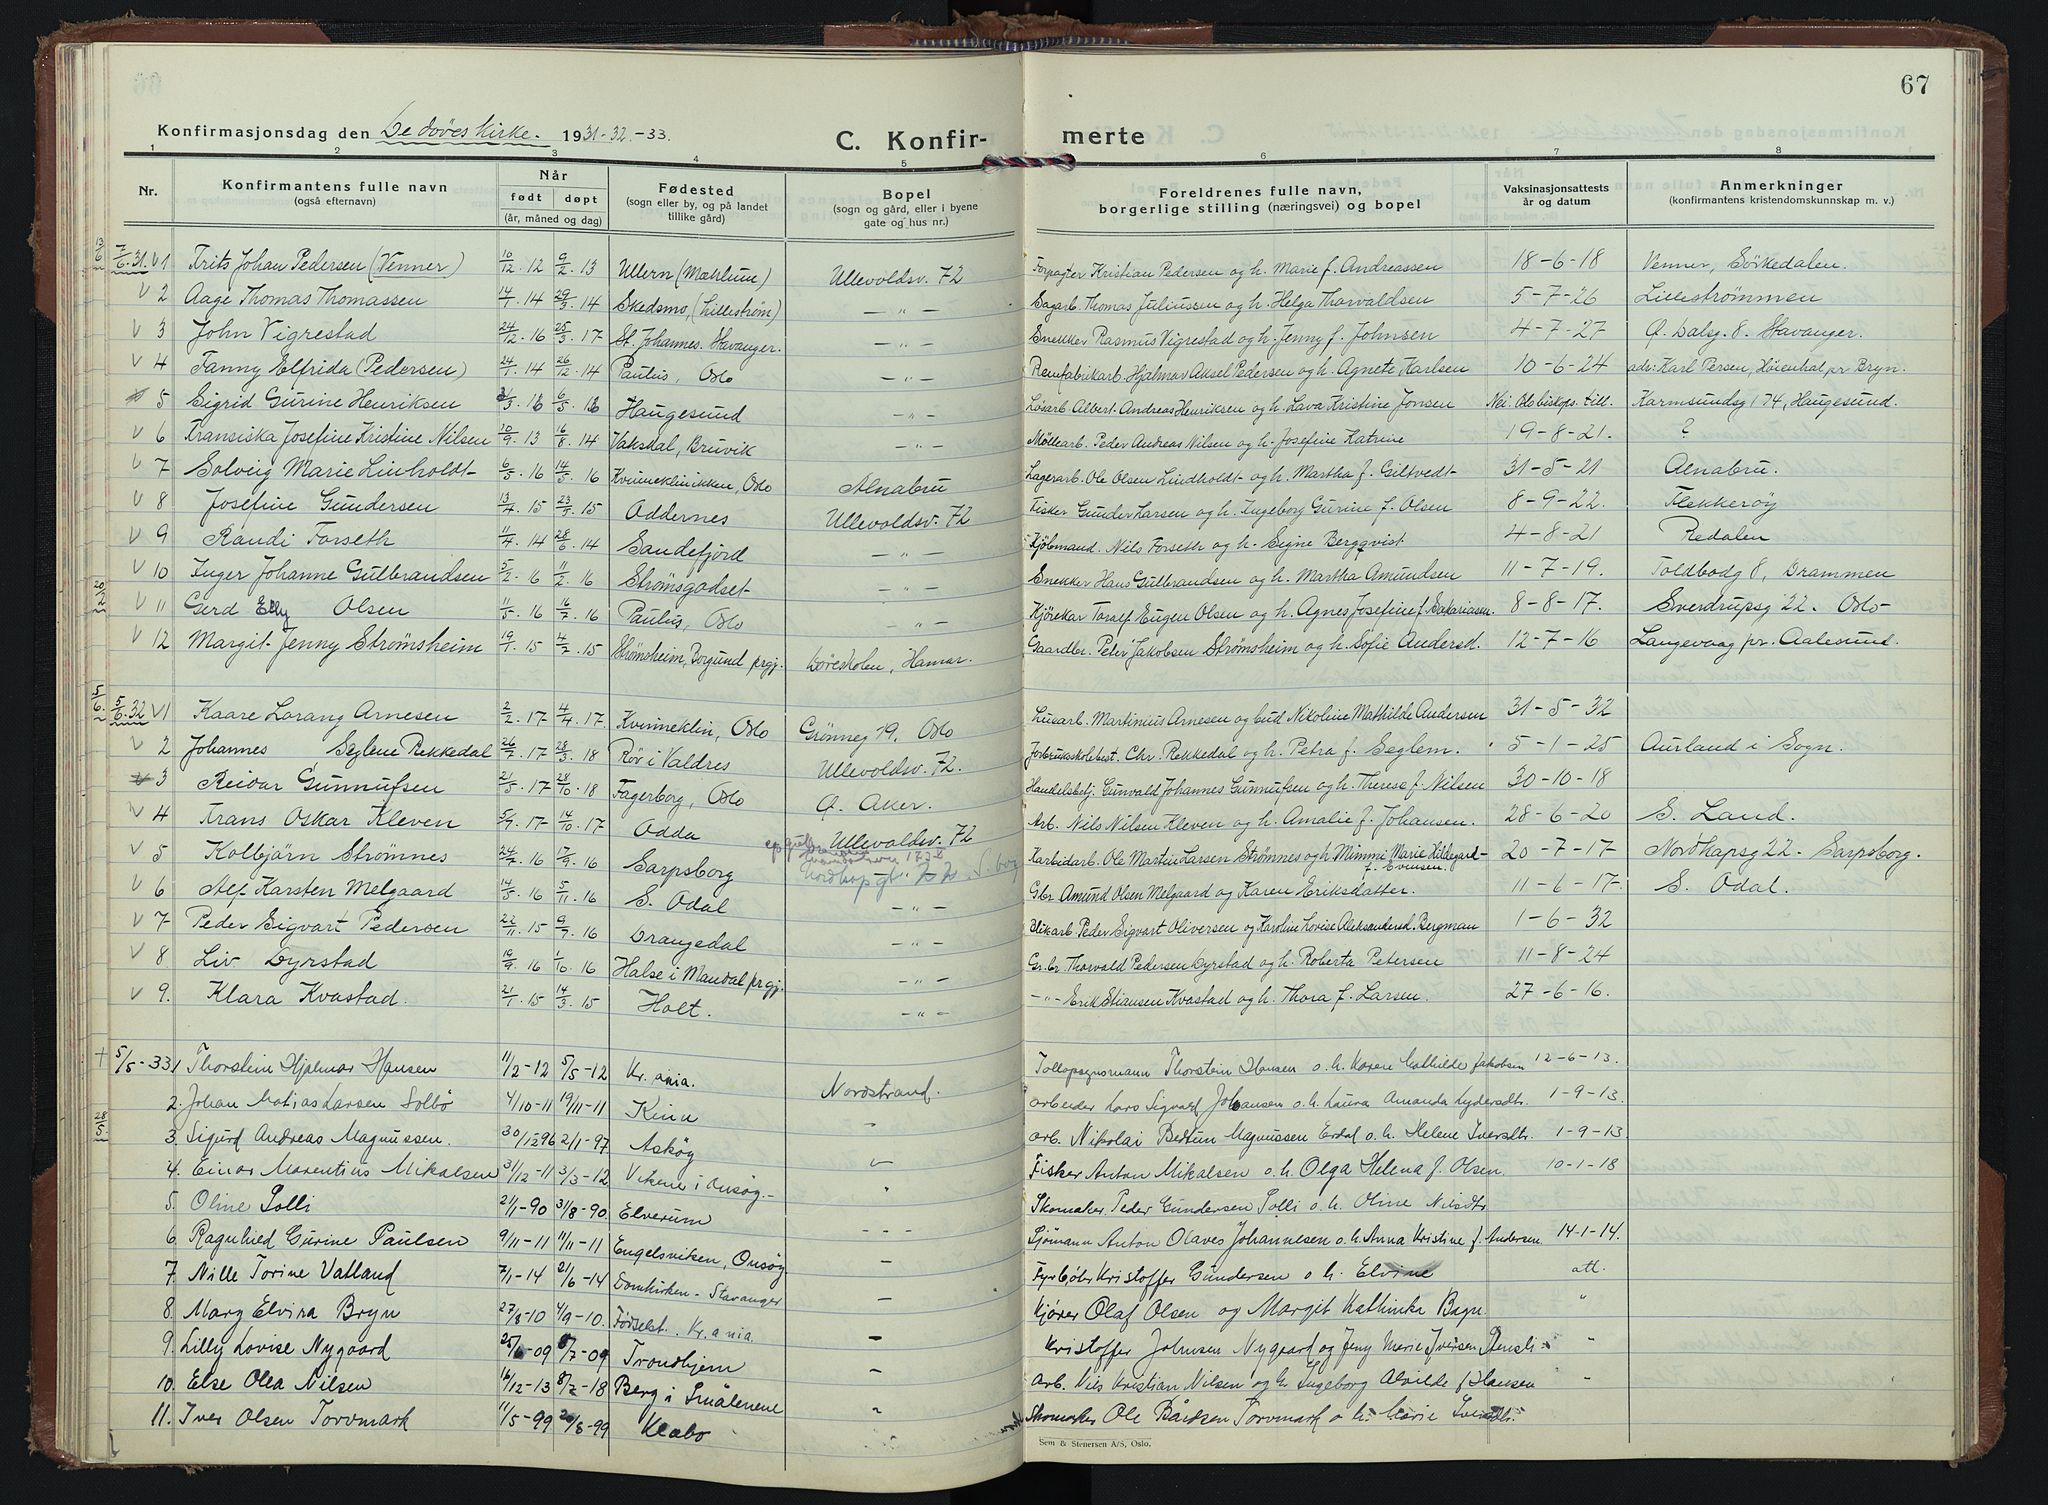 67
Konfirmasjonsdag den De døves kirke. 1931-32-33.
C. Konfir- merte
1 2 3 4 5 6 7 8
Nr. Konfirmantens fulle navn (også efternavn) Når født døpt (år, måned og dag) Fødested (sogn eller by, og på landet tillike gård) Bopel (sogn og gård, eller i byene gate og hus nr.) Foreldrenes fulle navn, borgerlige stilling (næringsvei) og bopel Vaksinasjonsattests år og datum Anmerkninger (konfirmantens kristendomskunnskap m. v.)
7/6.31 V 1 Frits Johan Pedersen (Venner) 10/12.12 9/2.13 Ullern (Mæhlum) Ullevoldsv. 72 Forpagter Kristian Pedersen og h. Marie f. Andreassen 18-6-18 Venner, Sörkedalen.
V 2 Aage Thomas Thomassen 14/1.14 29/3.14 Skedsmo, (Lillestrøm) —"— Sagarb. Thomas Juliussen og h. Helga Thorvaldsen 5-7-26 Lillestrømmen
V 3 John Vigrestad 24/12.16 25/3.17 St. Johannes. Stavanger. —"— Snekker Rasmus Vigrestad og h. Jenny f. Johnsen 4-7-27 Q. Dalsg. 8. Stavanger.
V 4 Fanny Elfrida (Pedersen) 24/1.14 26/12.14 Paulus, Oslo —"— Remfabrikarb. Hjalmar Aksel Pedersen og h. Agnete Karlsen 10-6-24 adr: Karl Persen, Höienhal pr Bryn.
5 Sigrid Gurine Henriksen Haugesund —"— Lösarb. Albert Andreas Henriksen og h. Lava Kristine Jonsen Nei. Oslo bisköps. till. Karmsundsg 174, Haugesund.
V 6 Fransiska Josefine Kristine Nilsen 10/9.13 16/8.14 Vaksdal, Bruvik —"— Möllearb. Peder Andreas Nilsen og h. Josefine Katrine 19-8-21. ?
V 7 Solveig Marie Lindholdt 6/5.16 14/5.16 Kvinneklinikken, Oslo Alnabru Lagerarb. Ole Olsen Lindholdt og h. Martha f. Giltvedt 31-5-21 Alnabru.
V 8 Josefine Gundersen 13/4.15 23/5.15 Oddernes Ullevoldsv. 72 Fisker Gunder Larsen og h. Ingeborg Gurine f. Olsen 8-9-22. Flekkeröy
V 9 Randi Forseth 11/4.14 28/6.14 Sandefjord —"— Kjöbmand. Nils Forseth og h. Signe Bergqvist 4-8-21 Redalen
V 10 Inger Johanne Gulbrandsen 5/2.16 11/2.16 Strømsgodset —"— Snekker Hans Gulbrandsen og h. Martha Amundsen 11-7-19. Toldbodg 8, Drammen
V 11 Gerd Elly Olsen 11/5.16 16/7.16 Paulus, Oslo —"— Kjörekar Toralf Eugen Olsen og h. Agnes Josefine f. Sakariasen. 8-8-17. Sverdrupsg 22. Oslo
V 12 Margit Jenny Strømsheim 19/1.15 4/7.15 Strømsheim, Borgund prgj. Döveskolen, Hamar. Gaardbr. Peter Jakobsen Strømsheim og h. Sofie Andersd. 12-7-16 Langevaag pr. Aalesund.
5/6.32 V 1 Kaare Lorang Arnesen 2/2.17 4/4.17. Kvinneklin, Oslo Grønneg 19, Oslo Lösarb. Martinius Arnesen og hud Nikoline Mathilde Andersen 31-5-32
V 2 Johannes Seglene Rekkedal 26/7.17 28/3.18 Röv i Valdres Ullevoldsv. 72. Jorbruksskolebest. Chr. Rekkedal og h. Petra f. Seglem. 5-1-25 Aurland i Sogn.
3 Reidar Gunnufsen 21/5.17 28/10.18 Fagerborg, Oslo Q. Aker. Handelsbetj. Gunvald Johannes Gunnufsen og h. Therese f. Nilsen 30-10-18
V 4 Frans Oskar Kleven 5/9.17 14/10.17 Odda Ullevoldsv. 72 Arb. Nils Nilsen Kleven og h. Amalie f. Johansen. 28-6-20 S. Land.
V 5 Kolbjörn Strømnes 24/7.16 17/9.16 Sarpsborg Karbidarb. Ole Martin Larsen Strømnes og h. Mimmi Marie Hildegard f. Evensen. 20-7-17 Nordkapsg 22. Sarpsborg.
V 6 Alf Karsten Melgaard 14/5.16 5/11.16 S. Odal —"— Gbr. Amund Olsen Melgaard og Karen Eriksdatter. 11-6-17 S. Odal.
V 7 Peder Sigvart Pedersen 22/11.15 9/7.16 Drangedal —"— Peder Sigvart Oliversen og Karoline Lovise Aleksandersd. Bergman 1-6-32
V 8 Liv Dyrstad 19/9.16 1/10.16 Halse i Mandal prgj. —"— Gr. br. Thorvald Pedersen Dyrstad og h. Roberta Petersen 11-8-24
V 9. Klara Kvastad. 21/1.15 14/3.15 Holt. —"— —"— Erik Eliassen Kvastad og h. Thora f. Larsen. 27-6-16.
5/5-33 1 Thorstein Hjalmar Hansen 11/2-12 5/5-12 Kr.ania. Nordstrand. Tollopsynsmann Thorstein Hansen o.h. Karen Mathilde Jakobsen 12-6-13.
2. Johan Matias Larsen Solbö 4/10-11 19/11-11 Kinn " arbeider Lars Sigvald Johansen o.h. Laura Amanda Lydersdtr. 1-9-13.
3. Sigurd Andreas Magnussen. 30/12 96 2/11-97 Asköy " arb. Nikolai Bedtun Magnussen Erdal o.h. Helene Iversdtr. 1-9-13
4. Einar Marentius Mikalsen 31/12-11 3/3-12 Vikene i Onsöy. " Fisker Anton Mikalsen o.h. Olga Helena f. Olsen. 10-1-18
5. Oline Solli 21/1-90 31/8-90. Elverum - - - Skomaker Peder Gundersen Solli o.h. Oline Nilsdtr
6. Ragnhild Gurine Paulsen 9/11-11 11/11-11 Engelsviken, Onsöy - Sjömann Anton Olaves Johannesen o.h. Anna Kristine f. Andersen. 14-1-14.
7. Nille Torine Vatland 7/1-14 21/6-14 Domkirken - Stavanger - Fyrböter Kristoffer Gundersen o.h. Elvine att.
8. Mary Elvira Bryn 27/8-10 4/9-10. Födselst. Kr.ania. - Kjörer Olaf Olsen og Margit Kathinka Bryn "
9. Lilly Lovise Nygaard Trondhjem - Kristoffer Johnsen Nygaard og Jeny Marie Iversen "
10. Else Olea Nilsen Berg i Smålenene " Arb. Nils Kristian Nilsen og h. Ingeborg Alvilde f. Hansen "
11. Iver Olsen Torvmark 11/5-99 20/8-99 Klæbo Skomaker Ole Bårdsen Torvmark o.h. Marie Iversdtr.
Sem & Stenersen A/S, Oslo.